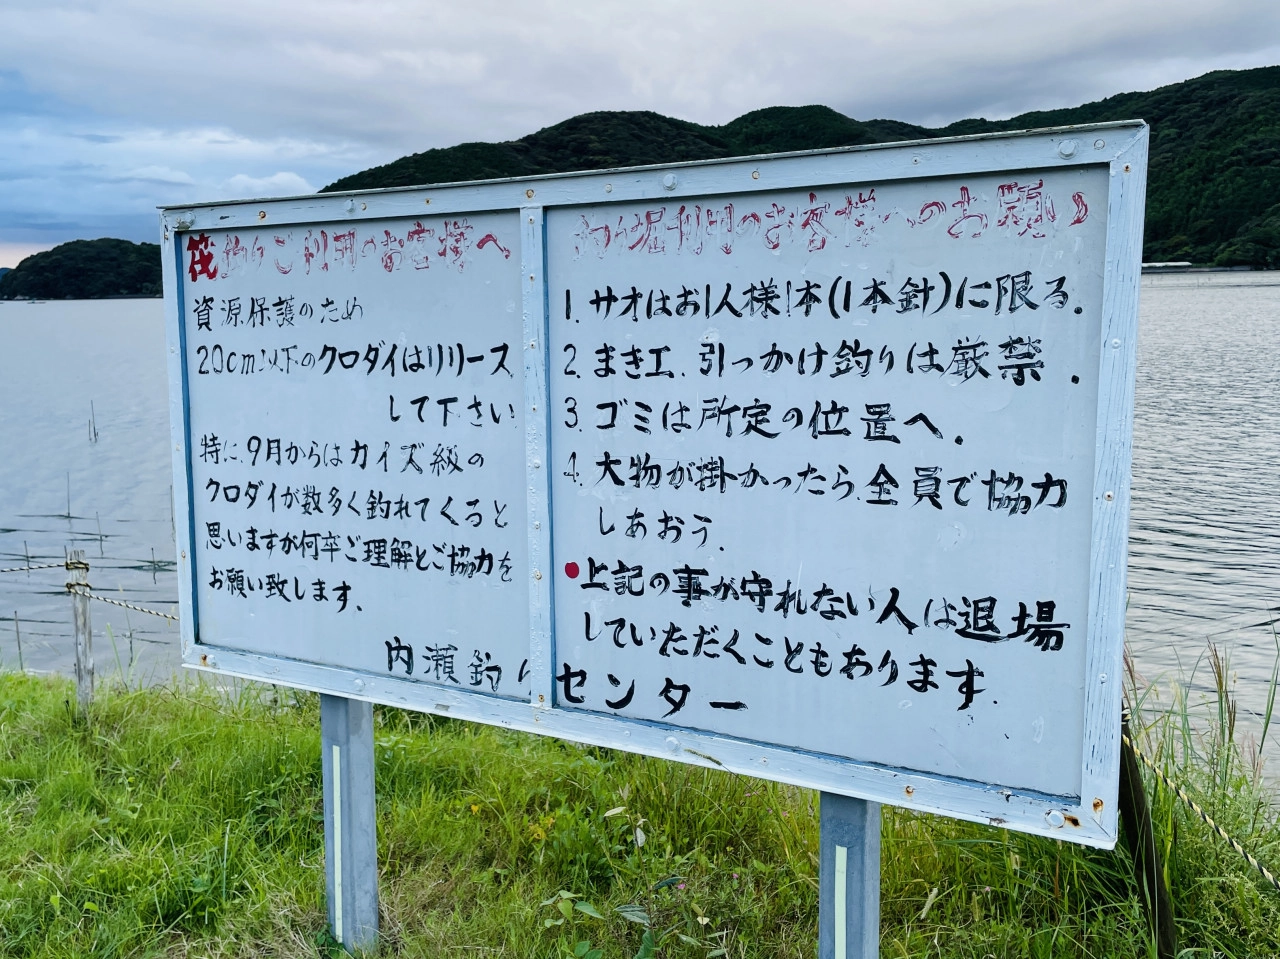 筏釣りご利用のお客様へ
資源保護のため
20cm以下のクロダイはリリース
して下さい
特に9月からはカイズ級の
クロダイが数多く釣れてくると
思いますが何卒ご理解とご協力を
お願い致します。
釣り堀利用のお客様へのお願い
1. サオはお1人様1本(1本針)に限る.
2. まき工、引っかけ釣りは厳禁.
3. ゴミは所定の位置へ.
4. 大物が掛かったら全員で協力
しあおう.
●上記の事が守れない人は退場
していただくこともあります.
内瀬釣りセンター